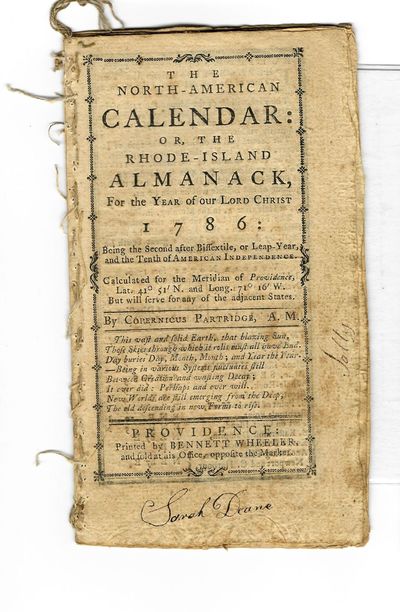 THE
NORTH-AMERICAN
CALENDAR:
OR, THE
RHODE-ISLAND
ALMANACK,
For the YEAR of our LORD CHRIST
1786:
Being the Second after Bissextile, or Leap-Year,
and the Tenth of AMERICAN INDEPENDENCE.
Calculated for the Meridian of Providence,
Lat. 41° 51' N. and Long. 71° 16' W.
But will serve for any of the adjacent States.
By COPERNICUS PARTRIDGE, A. M.
This vast and solid Earth, that blazing Sun,
Those Skies through which it rolls must all have End.
Day buries Day, Month, Month; and Year the Year.
—Being in various Systems fluctuates still
Between Creation and wasting Decay:
It ever did: Perhaps and ever will.
New Worlds are still emerging from the Deep,
The old descending in new Forms to rise.
PROVIDENCE:
Printed by BENNETT WHEELER,
and sold at his Office, opposite the Market.
Sarah Deane